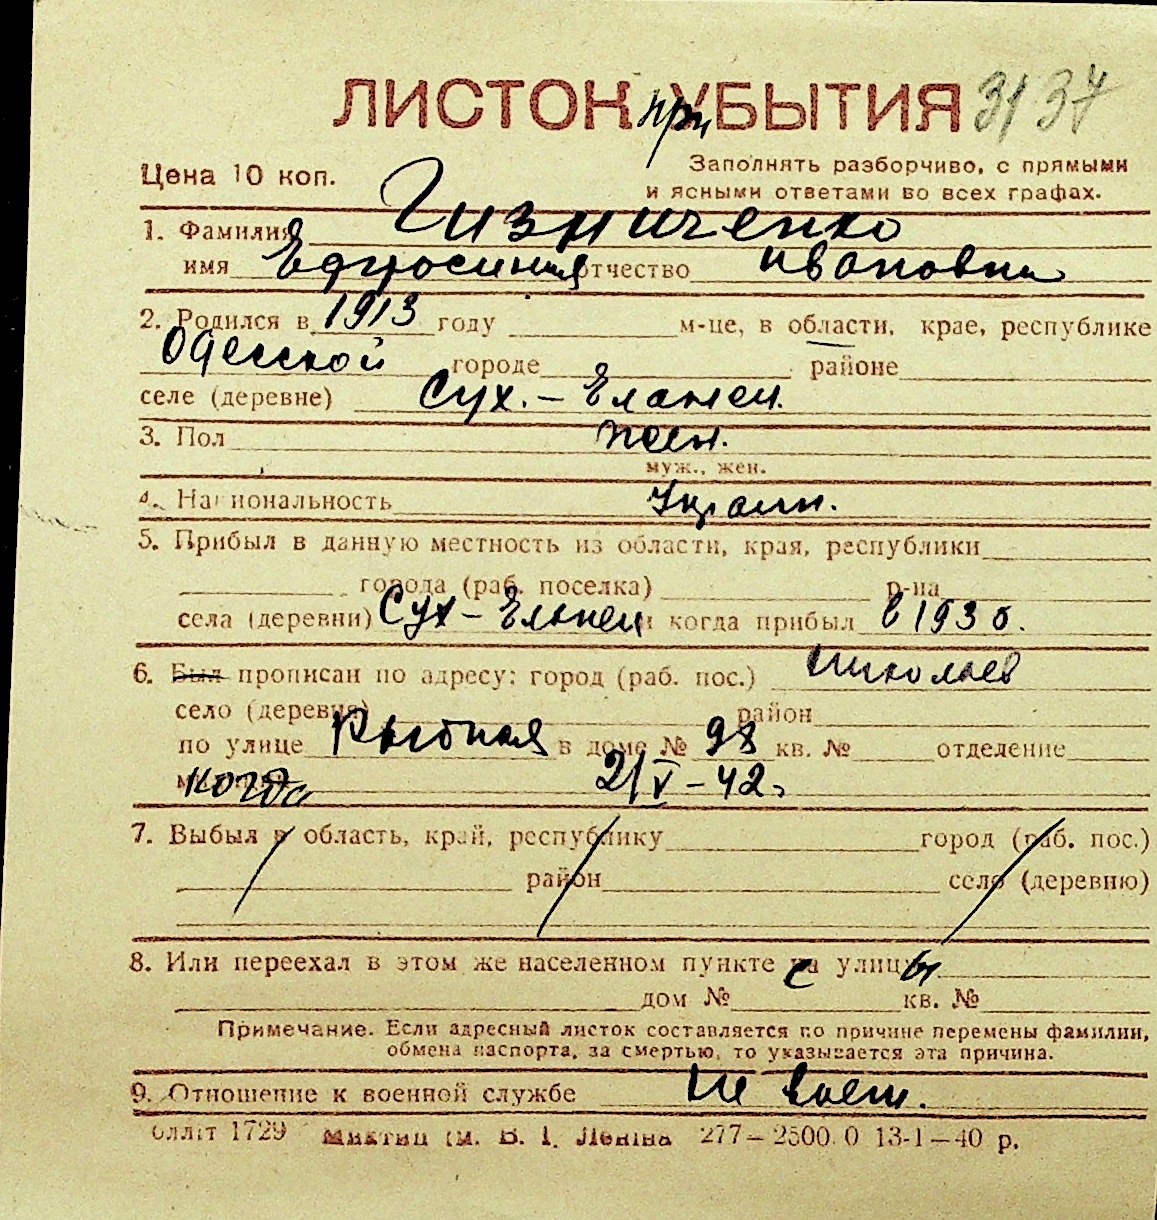 ЛИСТОК при УБЫТИЯ 3137
Цена 10 коп.
Заполнять разборчиво, с прямыми
и ясными ответами во всех графах.
1. Фамилия Гизниченко
имя Ефросиния отчество Ивановна
2. Родился в 1913 году м-це, в области, крае, республике
Одесской городе районе
селе (деревне) Сух. - Еланец.
3. Пол жен.
муж., жен.
4. Национальность Украин.
5. Прибыл в данную местность из области, края, республики
города (раб. поселка) р-на
села (деревни) Сух - Еланец и когда прибыл в 1930.
6. Был прописан по адресу: город (раб. пос.) Николаев
село (деревня) район
по улице Рыбная в доме № 98 кв. № отделение
когда 21/V - 42.
7. Выбыл в область, край, республику город (раб. пос.)
район село (деревню)
8. Или переехал в этом же населенном пункте с улицы
дом № кв. №
Примечание. Если адресный листок составляется по причине перемены фамилии,
обмена паспорта, за смертью, то указывается эта причина.
9. Отношение к военной службе не воен.
1729 Ленина 277—2500.0 13-1—40 р.